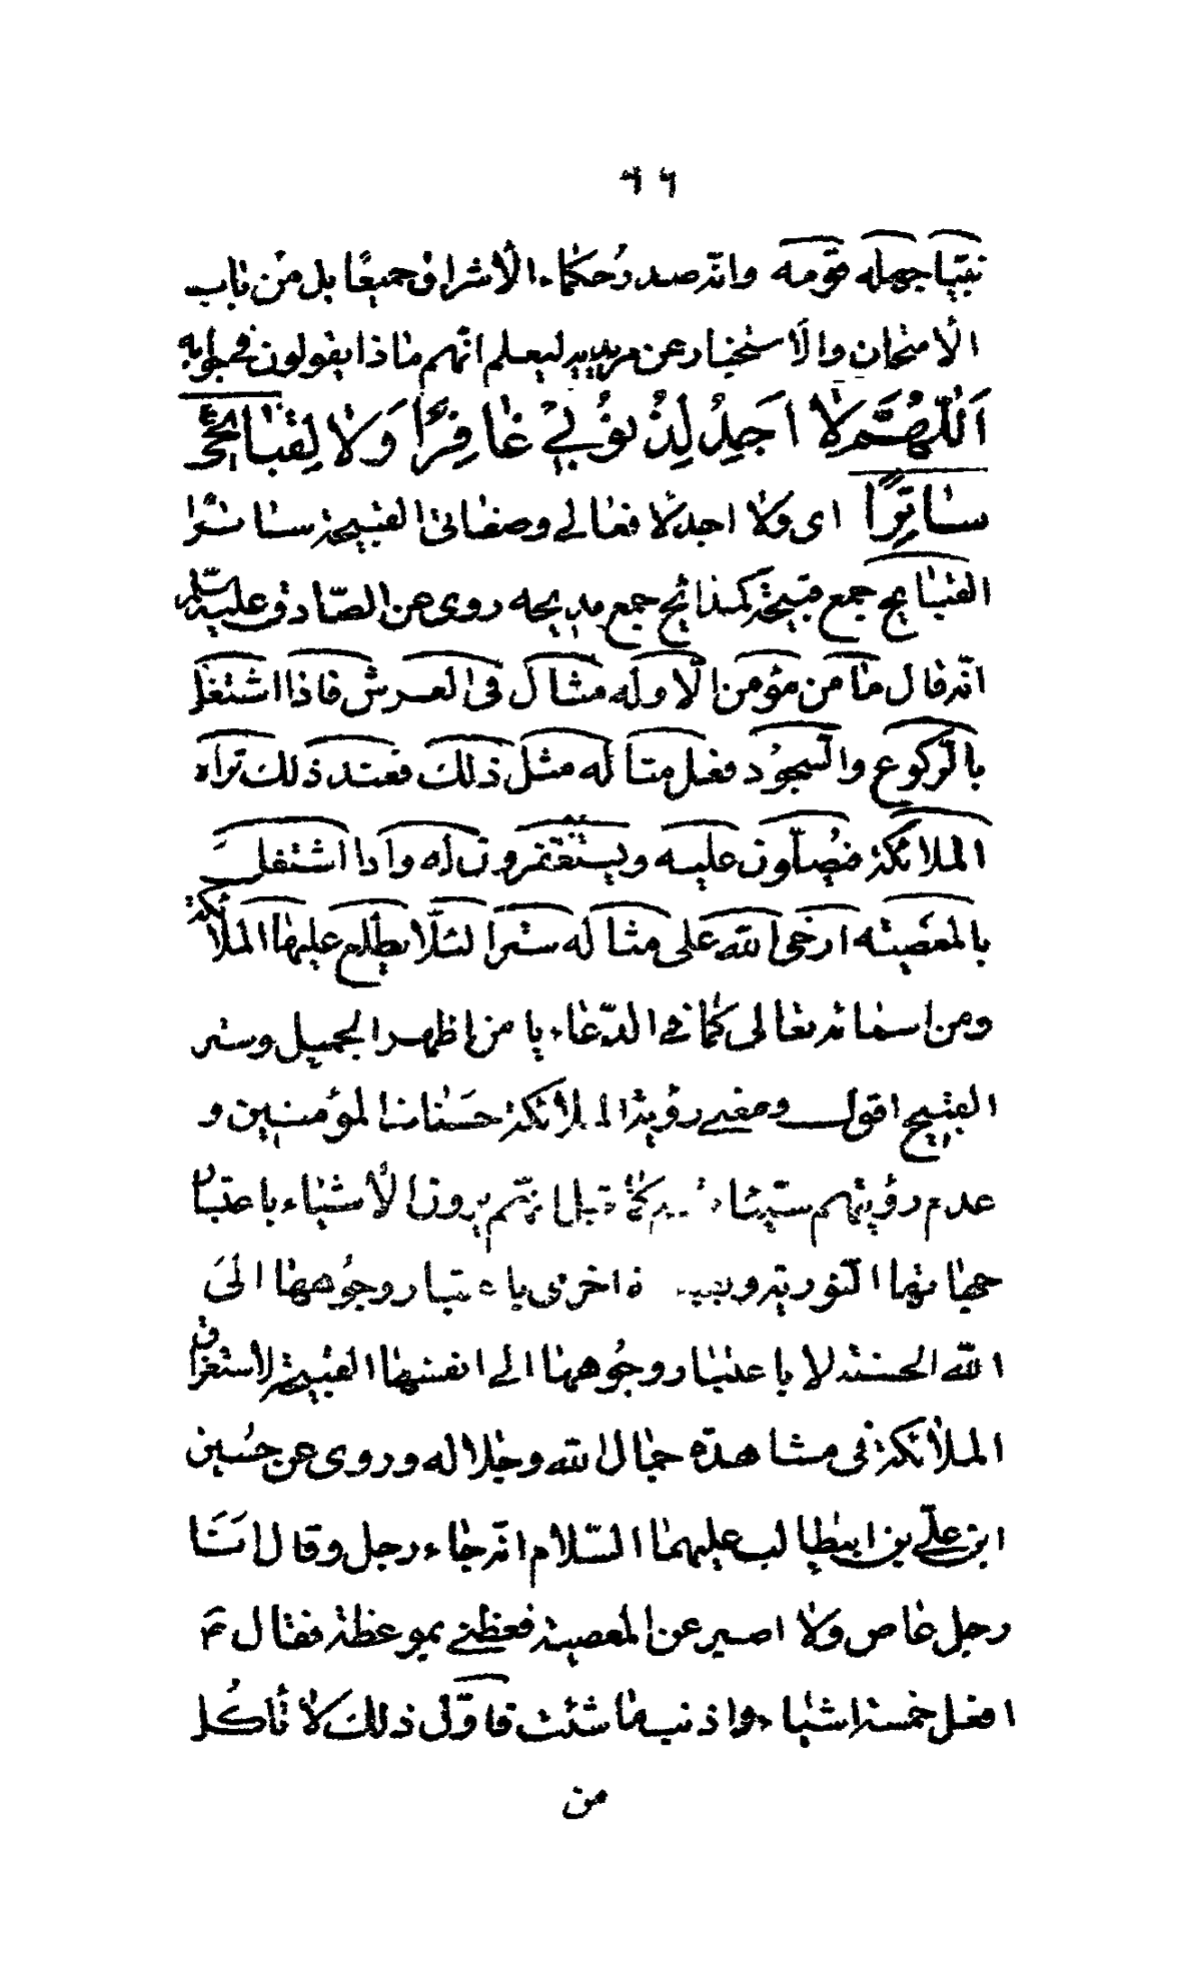 ٦٦
نبيّا جهله قومه وانّه صدر حكماء الأشراق جميعًا بل من باب
الامتحان والاستخبار عن مريديه ليعلم انّهم ماذا يقولون فى جوابه
اَللّهُمَّ لا اَجِدُ لِذُنُوبي غافِرًا وَلا لِقَبائِحي
ساتِرًا اى ولا اجد لافعالي وصفاتى القبيحة ساترا
القبايح جمع قبيحة كمذائح جمع مديحه روى عن الصّادق عليه السّلم
انّه قال ما من مؤمن الّا وله مثال فى العرش فاذا اشتغل
بالرّكوع والسّجود فعل مثاله مثل ذلك فعند ذلك تراه
الملائكة فيصلّون عليه ويستغفرون له واذا اشتغل
بالمعصيته ارخى الله على مثاله سترا لئلّا يطّلع عليها الملائكة
ومن اسمائه تعالى كما في الدّعاء يا من اظهر الجميل وستر
القبيح اقول ومعنى رؤية الملائكة حسنات المؤمنين و
عدم رؤيتهم سيّئا انّهم يرون الأشياء باعتبار
جهاتها النّورية و اخرى باعتبار وجوهها الى
الله الحسنة لا باعتبار وجوهها الى انفسها القبيحة لاستغراق
الملائكة فى مشاهدة جمال الله وجلاله وروى عن حسين
ابن علىّ بن ابيطالب عليهما السّلام انّه جاء رجل وقال اَنَا
رجل عاص ولا اصبر عن المعصية فعظني بموعظة فقال ع
افعل خمسة اشياء واذنب ما شئت فاوّل ذلك لا تأكُل
من